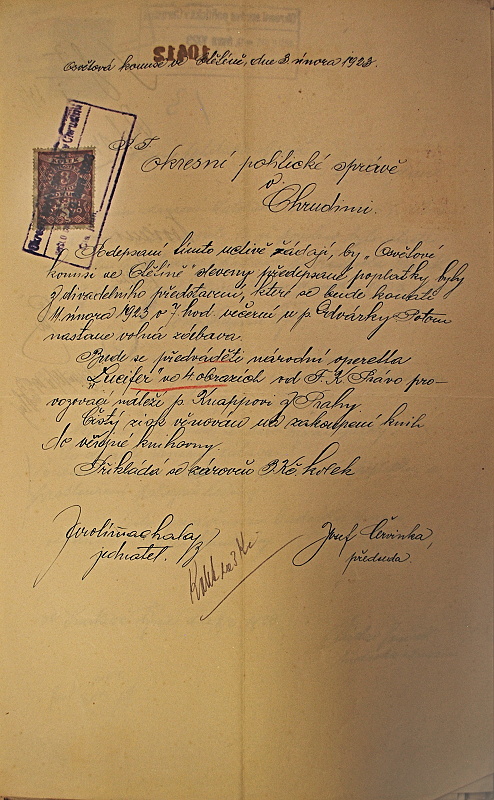 10412
Osvětová komise ve dne 3. února 1923.
P. T.
okresní politické správě
v
Chrudimi.
Podepsaní tímto uctivě žádají, by „Osvětové
komisi ve sleveny předepsané poplatky byly
z divadelního představení, které se bude konati
11. února 1923 o 7. hod. večerní u p. Potom
nastane volná zábava.
Bude se předváděti národní operetta
„Lucifer" ve 4. obrazích od F. K. pro-
vozovací náleží p. Knappovi z Prahy.
Čistý zisk věnován na zakoupení knih
do veřejné knihovny.
Přikládá se zároveň 3 Kč. kolek
jednatel.
Josef Červinka,
předseda.
Kolek za 3 Kč